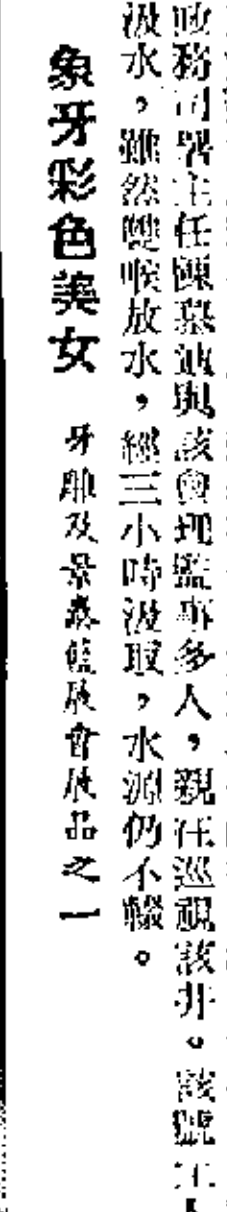 政務司署主任陳基滇與該會理監事多人，親往巡視該井。該號江
汲水，雖然雙喉放水，經三小時汲取，水源仍不輟。
象牙彩色美女 牙雕及景泰藍展會展品之一